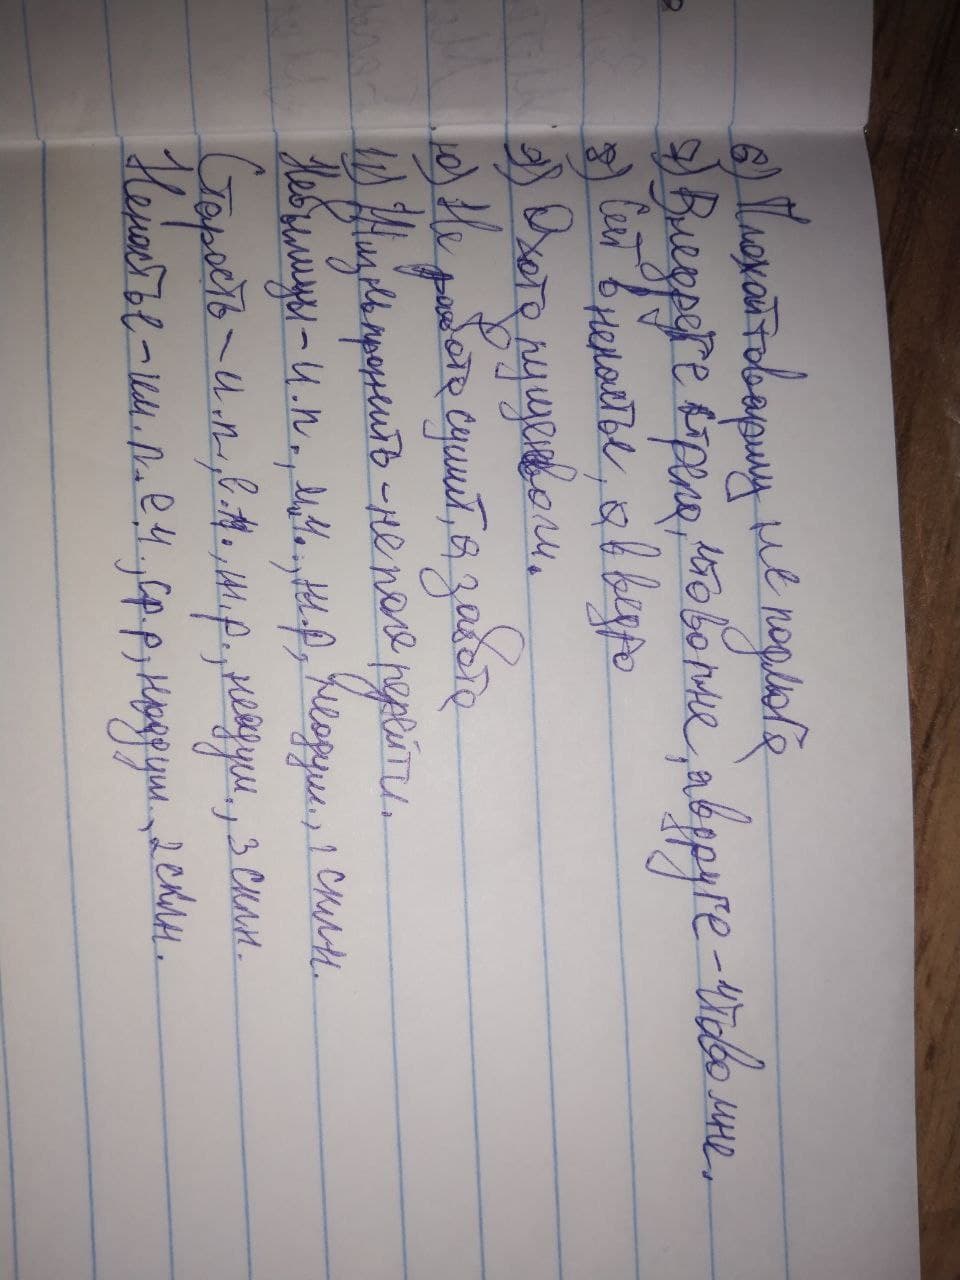 6) Плохой товарищ не подмога
7) В недруге стрела, что во пне, а в друге - что во мне.
8) Сей в ненастье, а в ведро
9) Охота пуще неволи.
10) Не работа сушит, а забота
11) Жизнь прожить - не поле перейти.
Небылицы - и.п., мн.ч., ж.р, неодуш., 1 склн.
Старость - и.п., в.п., ж.р., неодуш., 3 склн.
Ненастье - им.п. е.ч., ср.р, неодуш., 2 склн.